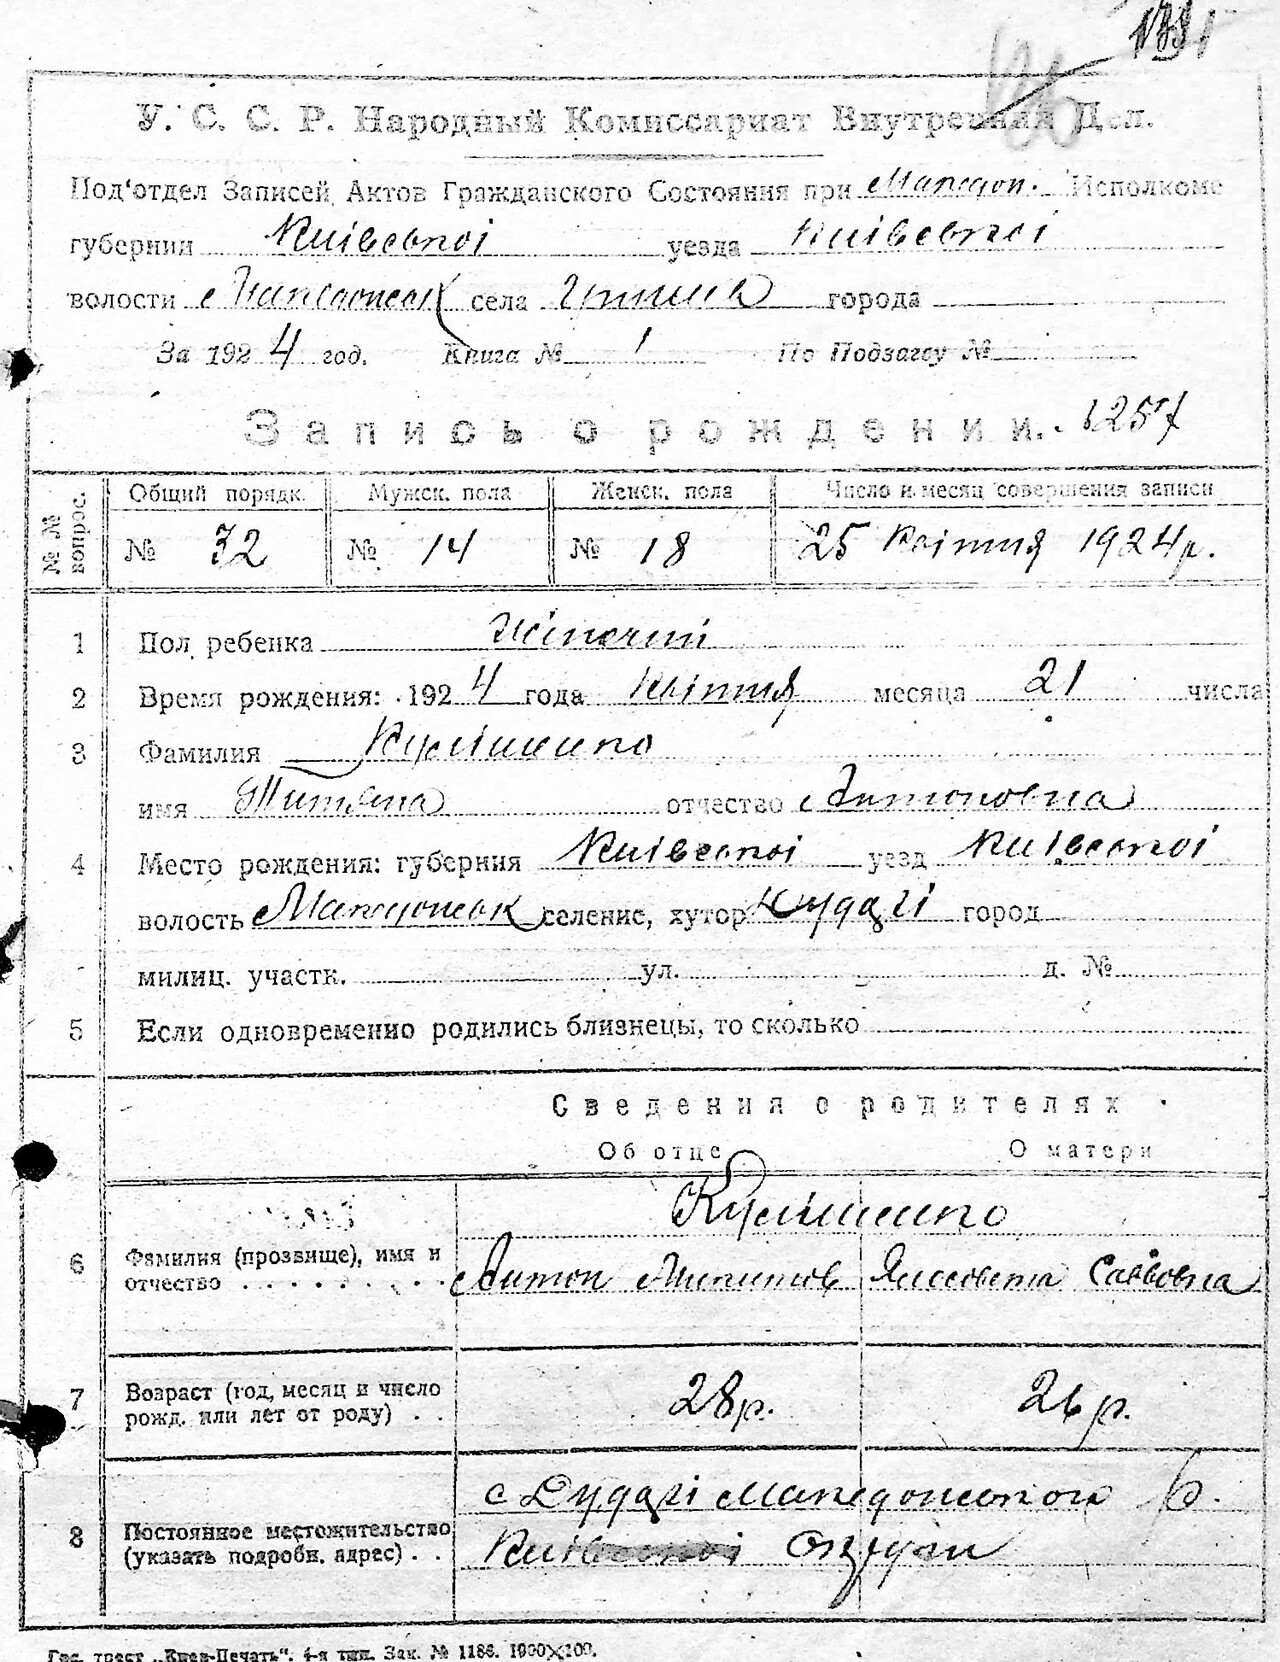 У. С. С. Р. Народный Комиссариат Внутренних Дел.
Под'отдел Записей Актов Гражданского Состояния при Македон. Исполкоме
губернии Київської уезда Київської
волости Македонськ села города
За 1924 год. Книга № 1 По Подзагсу №
Запись о рождении. 
№ № вопрос. Общий порядк. Мужск. пола Женск. пола Число и месяц совершения записи
№ 32 № 14 № 18 25 Квітня 1924 р.
1 Пол ребенка Жіночий
2 Время рождения: 1924 года Квітня месяца 21 числа
3 Фамилия Кулішенко
имя Титяна отчество Антоновна
4 Место рождения: губерния Київської уезд Київської
волость Македонськ селение, хутор Дударі город
милиц. участк. ул. д. №
5 Если одновременно родились близнецы, то сколько
Сведения о родителях
Об отце О матери
Кулішенко
6 Фамилия (прозвище), имя и отчество Антон Микитов Саввовна
7 Возраст (год, месяц и число рожд. или лет от роду) 28 р. 26 р.
с Дударі Македонського р.
8 Постоянное местожительство (указать подробн. адрес) Київської Округи
Гос. трест „Киев-Печать“. 4-я тип. Зак. № 1186. 1000×100.